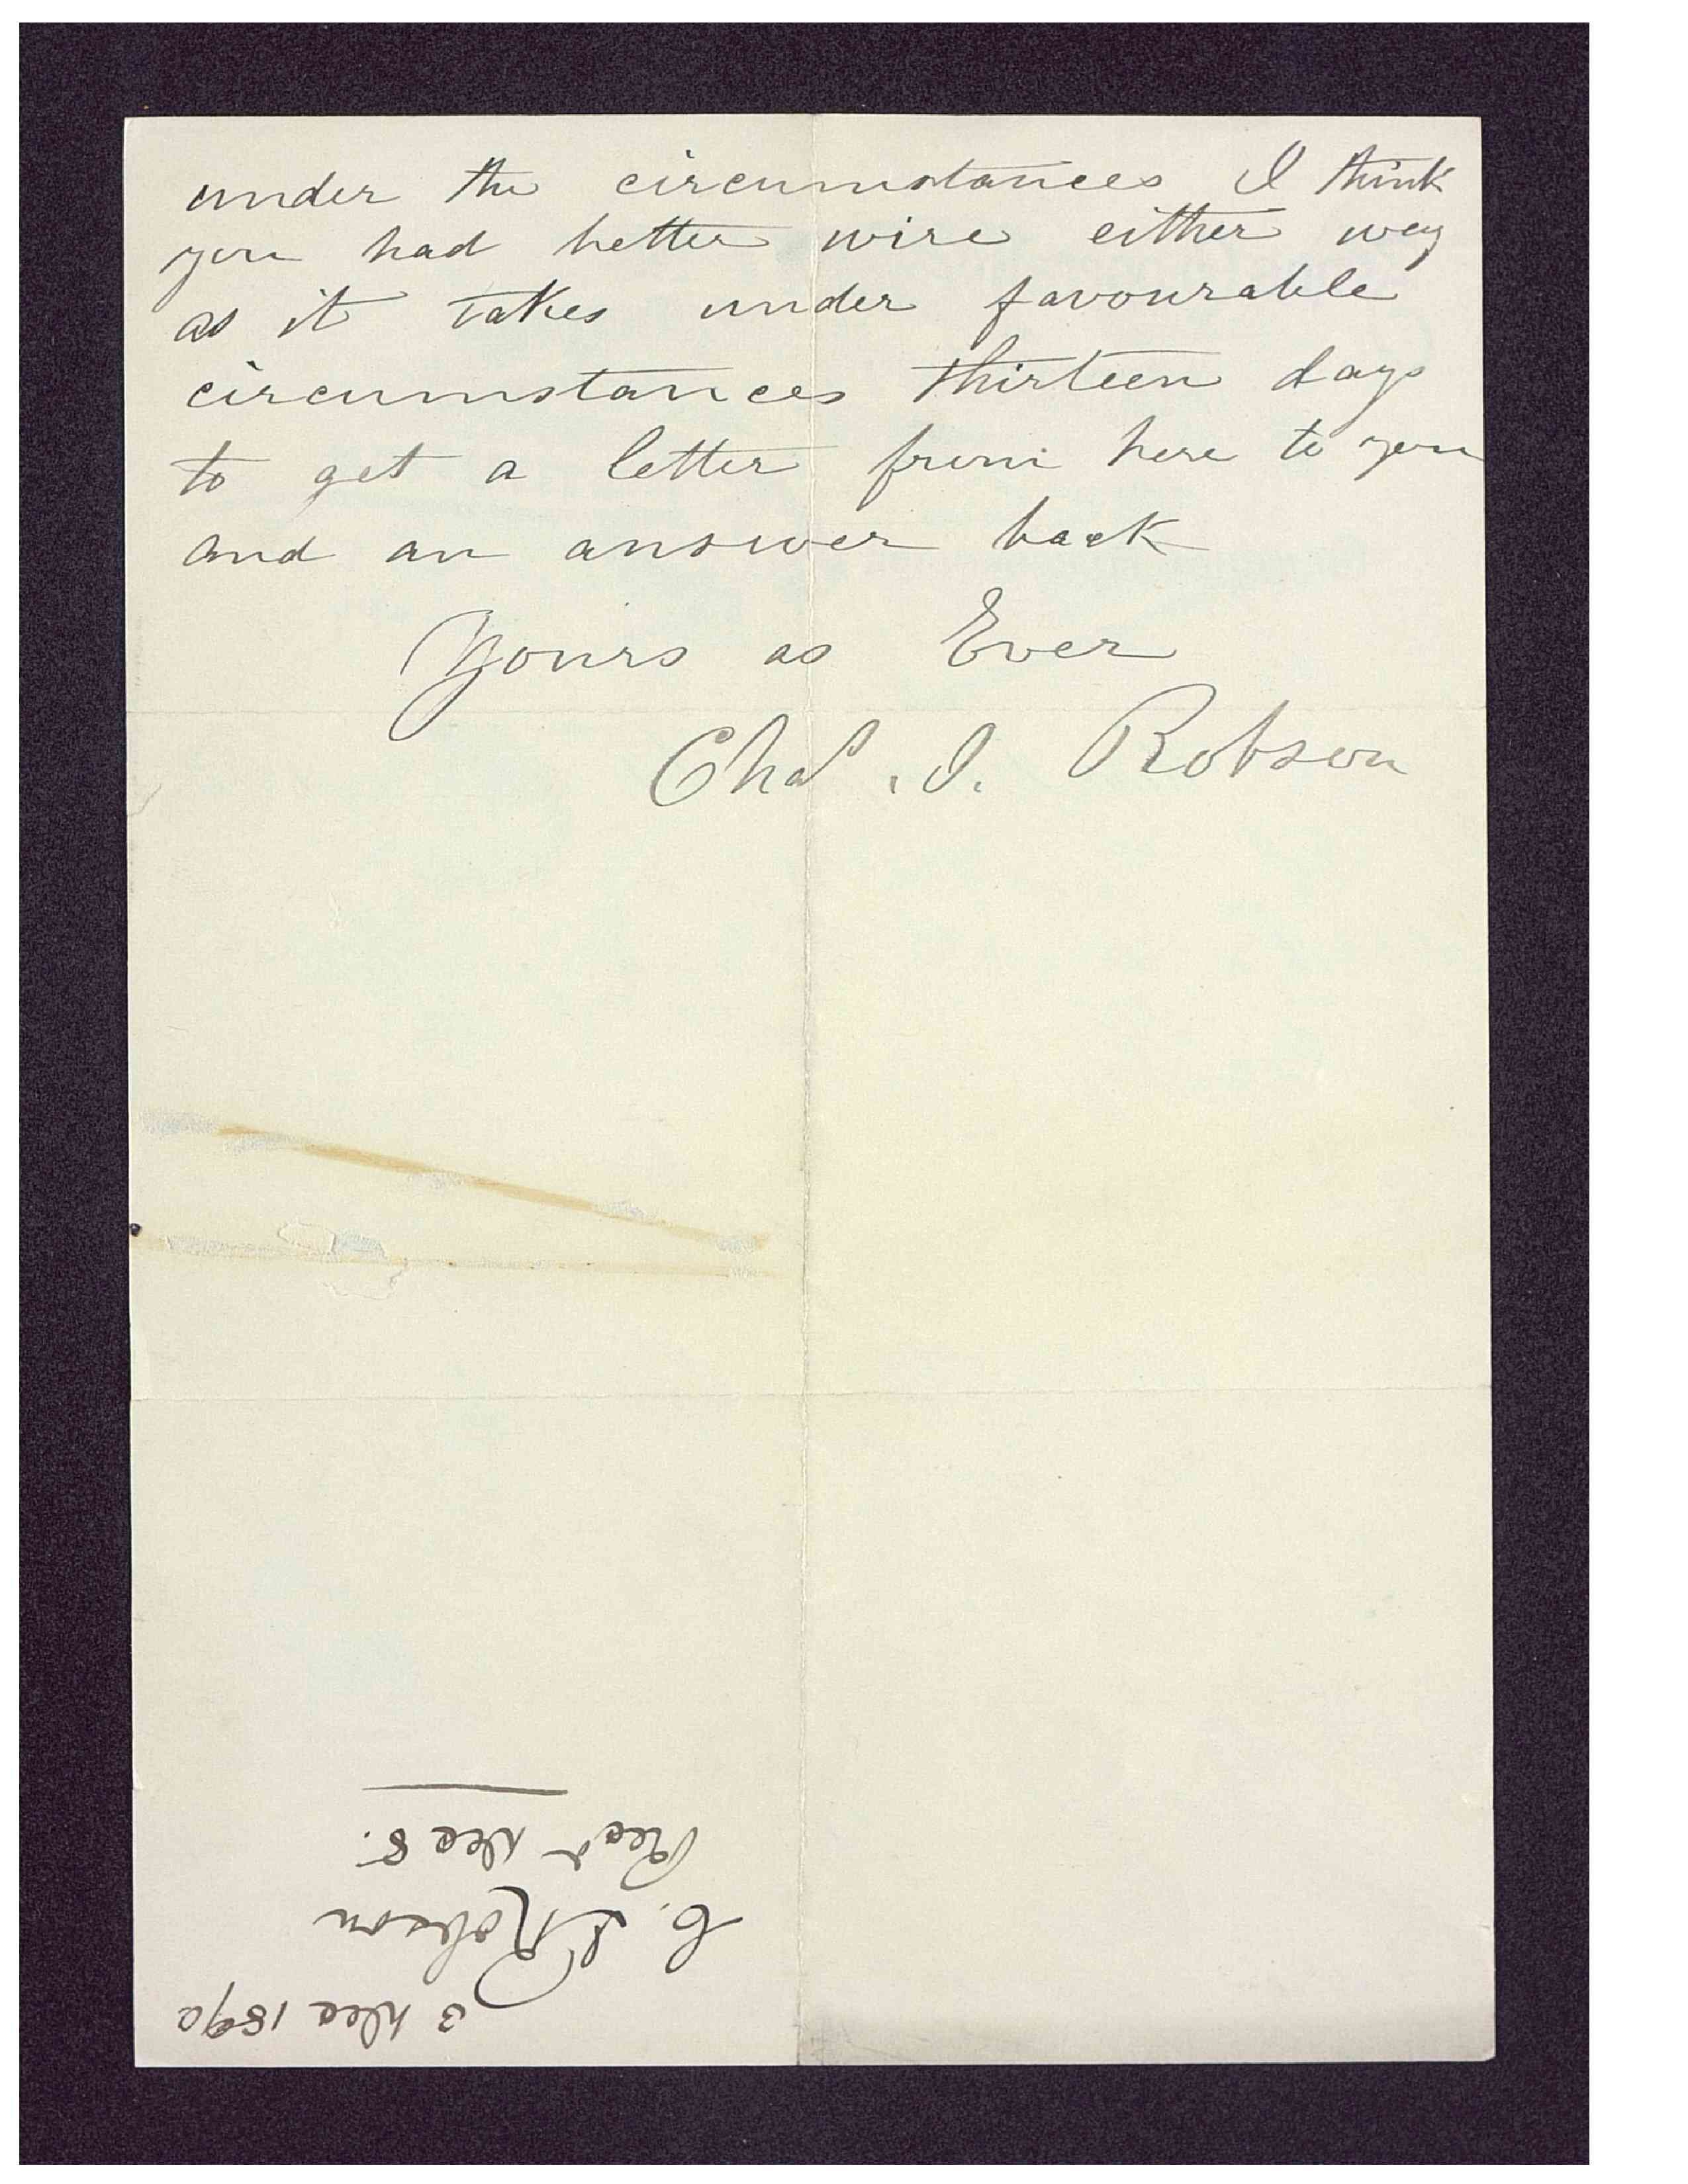 under the circumstances I think
you had better wire either way
as it takes under favourable
circumstances thirteen days
to get a letter from here to you
and an answer back
Yours as Ever
Chas. I. Robson
3 Dec 1890
C. I. Robson
Recd Dec 8.